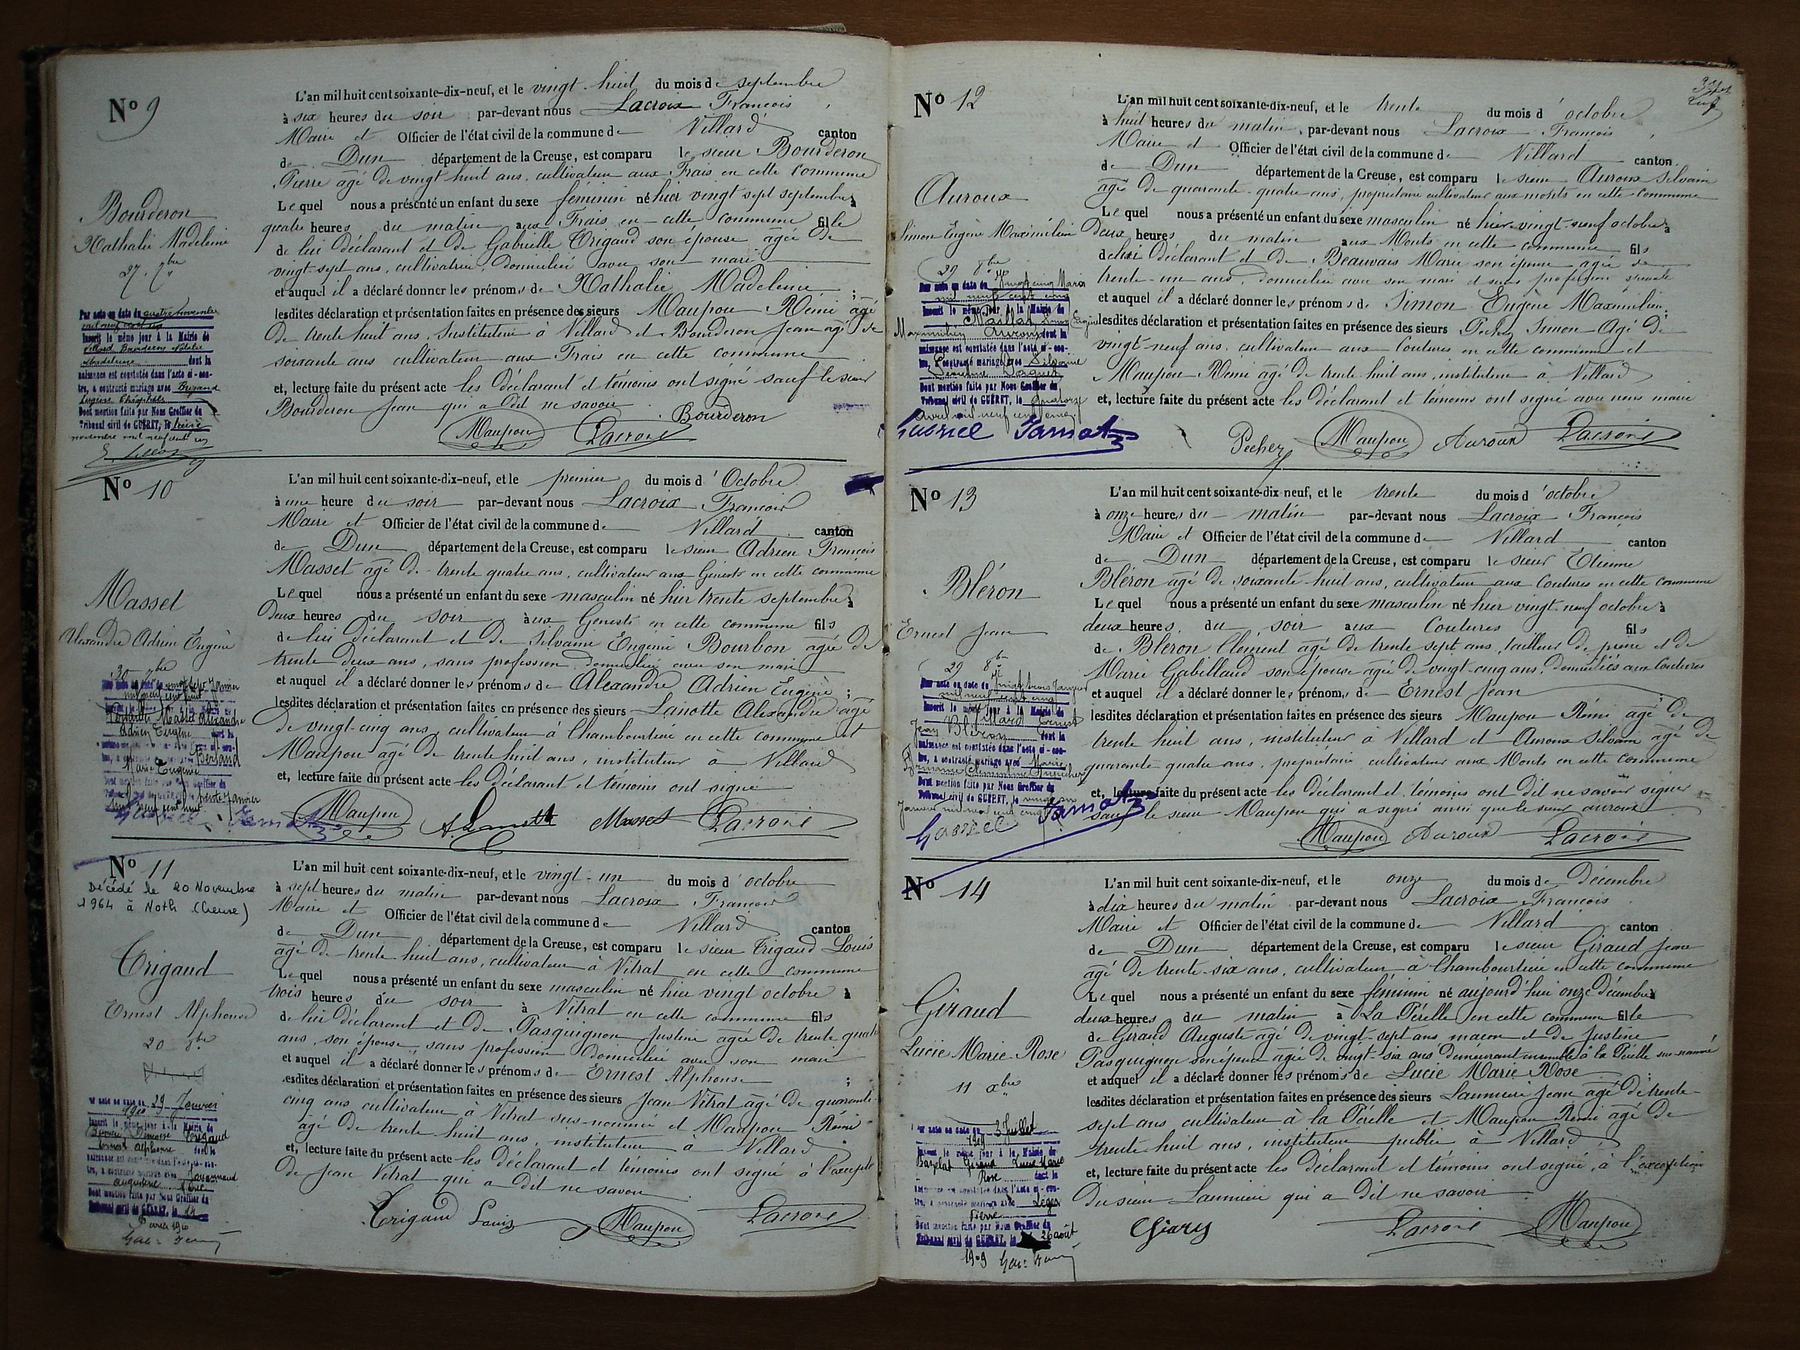 N° 9
Bourderon
Nathalie Madeleine
27. 7bre
Par acte en date du quatre novembre
mil neuf cent un
Inscrit le même jour à la Mairie de
Villard Bourderon Nathalie
Madeleine dont la
naissance est constatée dans l'acte ci-con-
tre, a contracté mariage avec
Dont mention faite par Nous Greffier du
Tribunal civil de GUÉRET, le treize
novembre mil neuf cent un
L'an mil huit cent soixante-dix-neuf, et le vingt huit du mois de septembre
à six heures du soir par-devant nous Lacroix François,
Maire et Officier de l'état civil de la commune de Villard canton
de Dun département de la Creuse, est comparu le sieur Bourderon
Pierre âgé de vingt huit ans, cultivateur aux Frais en cette commune
Lequel nous a présenté un enfant du sexe féminin né hier vingt sept septembre à
quatre heures du matin aux Frais en cette commune fille
de lui déclarant et de Gabrielle Trigaud son épouse âgée de
vingt sept ans, cultivatrice, domiciliée avec son mari
et auquel il a déclaré donner les prénoms de Nathalie Madeleine ;
lesdites déclaration et présentation faites en présence des sieurs Maupou Rémi âgé
de trente huit ans, Instituteur à Villard et Bourderon Jean âgé de
soixante ans cultivateur aux Frais en cette commune
et, lecture faite du présent acte les déclarant et témoins ont signé sauf le sieur
Bourderon Jean qui a dit ne savoir. Bourderon
Maupou Lacroix
N° 10
Masset
Alexandre Adrien Eugène
30 7bre
Adrien Eugène
Berland
Marie Eugénie
Gabriel Jamot
L'an mil huit cent soixante-dix-neuf, et le premier du mois d'Octobre
à une heure du soir par-devant nous Lacroix François
Maire et Officier de l'état civil de la commune de Villard canton
de Dun département de la Creuse, est comparu le sieur Adrien François
Masset âgé de trente quatre ans, cultivateur aux Genests en cette commune
Lequel nous a présenté un enfant du sexe masculin né hier trente septembre à
deux heures du soir aux Genests en cette commune fils
de lui déclarant et de Silvaine Eugénie Bourbon âgée de
trente deux ans, sans profession, domiciliée avec son mari
et auquel il a déclaré donner les prénoms de Alexandre Adrien Eugène ;
lesdites déclaration et présentation faites en présence des sieurs Lanotte Alexandre âgé
de vingt-cinq ans cultivateur à Chambourtieix en cette commune et
Maupou âgé de trente huit ans, instituteur à Villard
et, lecture faite du présent acte les déclarant et témoins ont signé
Maupou Masset Lacroix
N° 11
Décédé le 20 Novembre
1964 à Noth (Creuse)
Trigaud
Ernest Alphonse
20 8bre
Par acte en date du 29 Janvier
1910
Inscrit le même jour à la Mairie de
Trigaud
Ernest Alphonse dont la
naissance est constatée dans l'acte ci-con-
tre, a contracté mariage avec
Dont mention faite par Nous Greffier du
Tribunal civil de GUÉRET, le
L'an mil huit cent soixante-dix-neuf, et le vingt-un du mois d'octobre
à sept heures du matin par-devant nous Lacroix François
Maire et Officier de l'état civil de la commune de Villard canton
de Dun département de la Creuse, est comparu le sieur Trigaud Louis
âgé de trente huit ans, cultivateur à Vitrat en cette commune
Lequel nous a présenté un enfant du sexe masculin né hier vingt octobre à
trois heures du soir à Vitrat en cette commune fils
de lui déclarant et de Pasquignon Justine âgée de trente quatre
ans, son épouse sans profession domiciliée avec son mari
et auquel il a déclaré donner les prénoms de Ernest Alphonse ;
lesdites déclaration et présentation faites en présence des sieurs Jean Vitrat âgé de quarante
cinq ans cultivateur à Vitrat sus-nommé et Maupou Rémi
âgé de trente huit ans, instituteur à Villard
et, lecture faite du présent acte les déclarant et témoins ont signé à l'except
de Jean Vitrat qui a dit ne savoir
Trigaud Louis Maupou Lacroix
N° 12
Auroux
Simon Eugène Maximilien
29 8bre
Par acte en date du vingt cinq Mars
mil neuf cent cinq
Inscrit le même jour à la Mairie de
Maximilien Auroux dont la
naissance est constatée dans l'acte ci-con-
tre, a contracté mariage avec Silvaine
Dont mention faite par Nous Greffier du
Tribunal civil de GUÉRET, le quatorze
avril mil neuf cent cinq
Gabriel Jamot
L'an mil huit cent soixante-dix-neuf, et le trente du mois d'octobre
à huit heures du matin, par-devant nous Lacroix François,
Maire et Officier de l'état civil de la commune de Villard canton
de Dun département de la Creuse, est comparu le sieur Auroux Silvain
âgé de quarante-quatre ans, propriétaire cultivateur aux Monts en cette commune
Lequel nous a présenté un enfant du sexe masculin né hier vingt-neuf octobre à
deux heures du matin aux Monts en cette commune fils
de lui déclarant et de Beauvais Marie son épouse âgée de
trente-un ans, domiciliée avec son mari et sans profession
et auquel il a déclaré donner les prénoms de Simon Eugène Maximilien ;
lesdites déclaration et présentation faites en présence des sieurs Pecher Simon âgé de
vingt-neuf ans, cultivateur aux Coutures en cette commune et
Maupou Rémi âgé de trente huit ans, instituteur à Villard
et, lecture faite du présent acte les déclarant et témoins ont signé avec nous maire
Pecher Maupou Auroux Lacroix
N° 13
Bléron
Ernest Jean
29 8bre
Par acte en date du vingt trois Janvier
mil neuf cent cinq
Inscrit le même jour à la Mairie de
Villard Ernest
Jean Bléron dont la
naissance est constatée dans l'acte ci-con-
tre, a contracté mariage avec Marie
Dont mention faite par Nous Greffier du
Tribunal civil de GUÉRET, le
Gabriel Jamot
L'an mil huit cent soixante-dix-neuf, et le trente du mois d'octobre
à onze heures du matin par-devant nous Lacroix François
Maire et Officier de l'état civil de la commune de Villard canton
de Dun département de la Creuse, est comparu le sieur Etienne
Bléron âgé de soixante-huit ans, cultivateur aux Coutures en cette commune
Lequel nous a présenté un enfant du sexe masculin né hier vingt-neuf octobre à
deux heures, du soir aux Coutures fils
de Bléron Clément âgé de trente sept ans, tailleur de pierre et de
Marie Gabillaud son épouse âgée de vingt-cinq ans domiciliés aux Coutures
et auquel il a déclaré donner les prénoms de Ernest Jean ;
lesdites déclaration et présentation faites en présence des sieurs Maupou Rémi âgé de
trente huit ans, instituteur à Villard et Auroux Silvain âgé de
quarante quatre ans, propriétaire cultivateur aux Monts en cette commune
et, lecture faite du présent acte les déclarant et témoins ont dit ne savoir signer
sauf le sieur Maupou qui a signé ainsi que le sieur Auroux
Maupou Auroux Lacroix
N° 14
Giraud
Lucie Marie Rose
11 xbre
Par acte en date du
1909 3 Juillet
Inscrit le même jour à la Mairie de
Bazelat Giraud Lucie Marie
Rose dont la
naissance est constatée dans l'acte ci-con-
tre, a contracté mariage avec Léger
Pierre
Dont mention faite par Nous Greffier du
Tribunal civil de GUÉRET, le 26 août
1909
L'an mil huit cent soixante-dix-neuf, et le onze du mois de Décembre
à dix heures du matin par-devant nous Lacroix François
Maire et Officier de l'état civil de la commune de Villard canton
de Dun département de la Creuse, est comparu le sieur Giraud Jean
âgé de trente-six ans, cultivateur à Chambourtieix en cette commune
Lequel nous a présenté un enfant du sexe féminin né aujourd'hui onze décembre à
deux heures du matin à La Péille en cette commune fille
de Giraud Auguste âgé de vingt-sept ans maçon et de Justine
Pasquignon son épouse âgée de vingt-six ans demeurant ensemble à la Péille sus-nommé
et auquel il a déclaré donner les prénoms de Lucie Marie Rose ;
lesdites déclaration et présentation faites en présence des sieurs Jean âgé de trente-
sept ans cultivateur à la Péille et Maupou Rémi âgé de
trente huit ans, instituteur public à Villard
et, lecture faite du présent acte les déclarant et témoins ont signé, à l'exception
du sieur qui a dit ne savoir
Lacroix Maupou